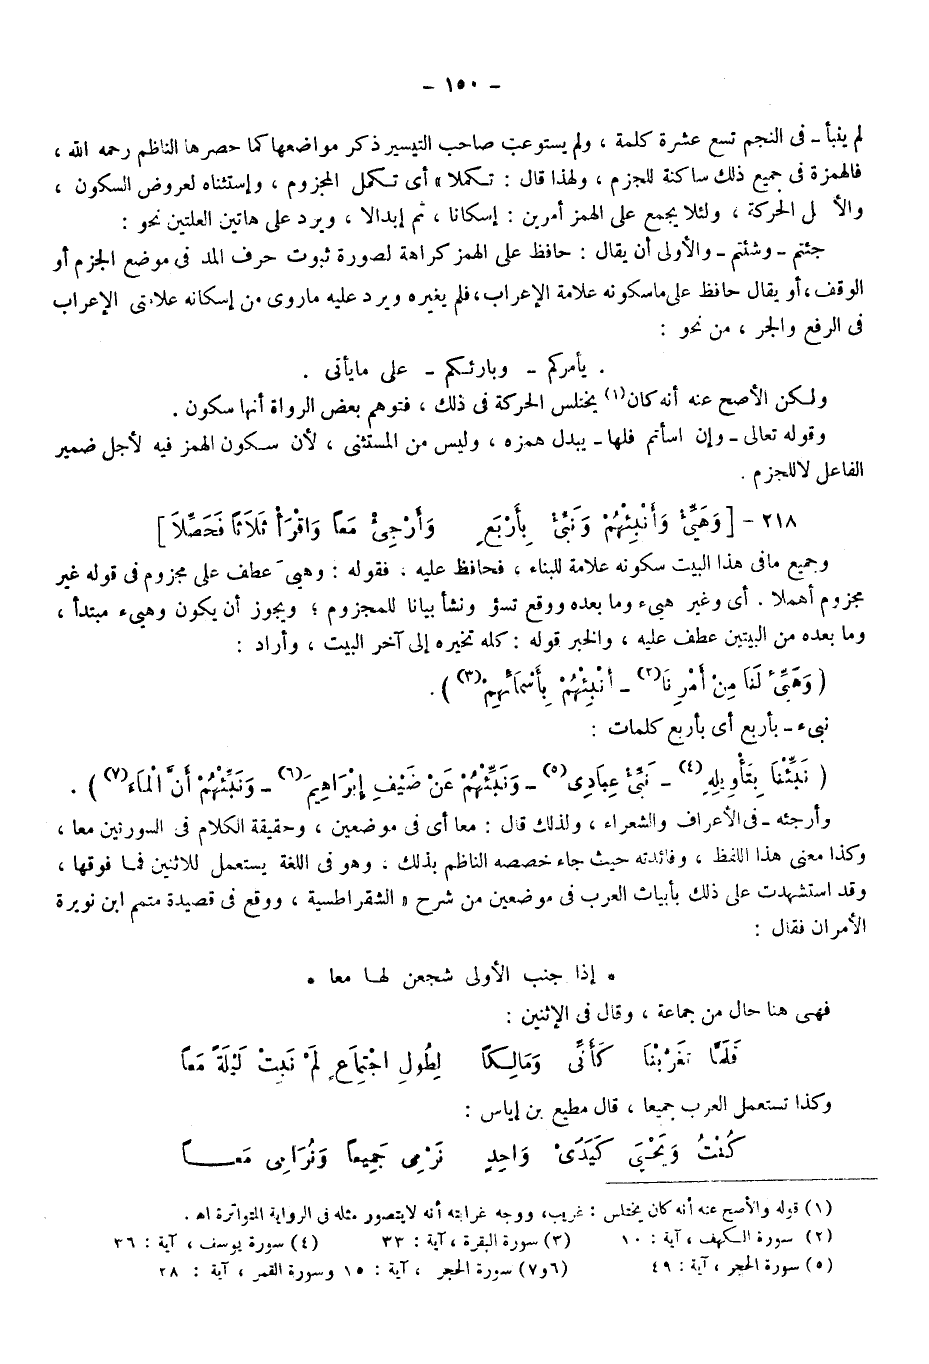 - ١٥٠ -
لم ينبأ - فى النجم تسع عشرة كلمة ، ولم يستوعب صاحب التيسير ذكر مواضعها كما حصرها الناظم رحمه الله ،
فالهمزة فى جميع ذلك ساكنة للجزم ، ولهذا قال : تكملا » أى تكمل المجزوم ، وإستثناه لعروض السكون ،
والأ ل الحركة ، ولئلا يجمع على الهمز أمرين : إسكانا ، ثم إبدالا ، ويرد على هاتين العلتين نحو :
جئتم - وشئتم - والأولى أن يقال : حافظ على الهمز كراهة لصورة ثبوت حرف المد فى موضع الجزم أو
الوقف ، أو يقال حافظ على ماسكونه علامة الإعراب ، فلم يغيره ويرد عليه ماروى من إسكانه علامتى الإعراب
فى الرفع والجر ، من نحو :
. يأمركم - وبارئكم - على مايأتى .
ولكن الأصح عنه أنه كان(١) يختلس الحركة فى ذلك ، فتوهم بعض الرواة أنها سكون .
وقوله تعالى - وإن اسأتم فلها - يبدل همزه ، وليس من المستثنى ، لأن سكون الهمز فيه لأجل ضمير
الفاعل لاللجزم .
٢١٨ - [ وَهَيِّئْ وَأَنْبِئْهُمْ وَنَبِّئْ بِأَرْبَعٍ وَأَرْجِئْ مَعاً وَاقْرَأْ ثَلَاثاً فَحَصِّلاَ ]
وجميع مافى هذا البيت سكونه علامة للبناء ، فحافظ عليه . فقوله : وهيئ عطف على مجزوم فى قوله غير
مجزوم أهملا . أى وغير هيىء وما بعده ووقع تسؤ ونشأ بيانا للمجزوم ؛ ويجوز أن يكون وهيىء مبتدأ ،
وما بعده من البيتين عطف عليه ، والخبر قوله : كله تخيره إلى آخر البيت ، وأراد :
( وَهَيِّئْ لَنَا مِنْ أَمْرِنَا(٢) - أَنْبِئْهُمْ بِأَسْمَائِهِمْ(٣) ) .
نبىء - بأربع أى بأربع كلمات :
( نَبِّئْنَا بِتَأْوِيلِهِ (٤) - نَبِّئْ عِبَادِى(٥) - وَنَبِّئْهُمْ عَنْ ضَيْفِ إِبْرَاهِيمَ(٦) - وَنَبِّئْهُمْ أَنَّ الْمَاءَ(٧) ) .
وأرجئه - فى الأعراف والشعراء ، ولذلك قال : معا أى فى موضعين ، وحقيقة الكلام فى السورتين معا ،
وكذا معنى هذا اللفظ ، وفائدته حيث جاء خصصه الناظم بذلك . وهو فى اللغة يستعمل للاثنين فما فوقها ،
وقد استشهدت على ذلك بأبيات العرب فى موضعين من شرح « الشقراطسية ، ووقع فى قصيدة متمم ابن نويرة
الأمران فقال :
* إذا جنب الأولى شجعن لها معا *
فهى هنا حال من جماعة ، وقال فى الإثنين :
فَلَمَّا تَفَرَّقْنَا كَأَنِّى وَمَالِكاً لِطُولِ اجْتِمَاعٍ لَمْ نَبِتْ لَيْلَةً مَعاً
وكذا تستعمل العرب جميعا ، قال مطيع بن إياس :
كُنْتُ وَيَحْيَى كَيَدَىْ وَاحِدٍ نَرْمِى جَمِيعاً وَنُرَامِى مَعـــاً
(١) قوله والأصح عنه أنه كان يختلس : غريب ، ووجه غرابته أنه لايتصور مثله فى الرواية المتواترة اه .
(٢) سورة الكهف ، آية : ١٠ (٣) سورة البقرة ، آية : ٣٣ (٤) سورة يوسف ، آية : ٣٦
(٥) سورة الحجر ، آية : ٤٩ (٦ و٧) سورة الحجر ، آية : ٥١ وسورة القمر ، آية : ٢٨